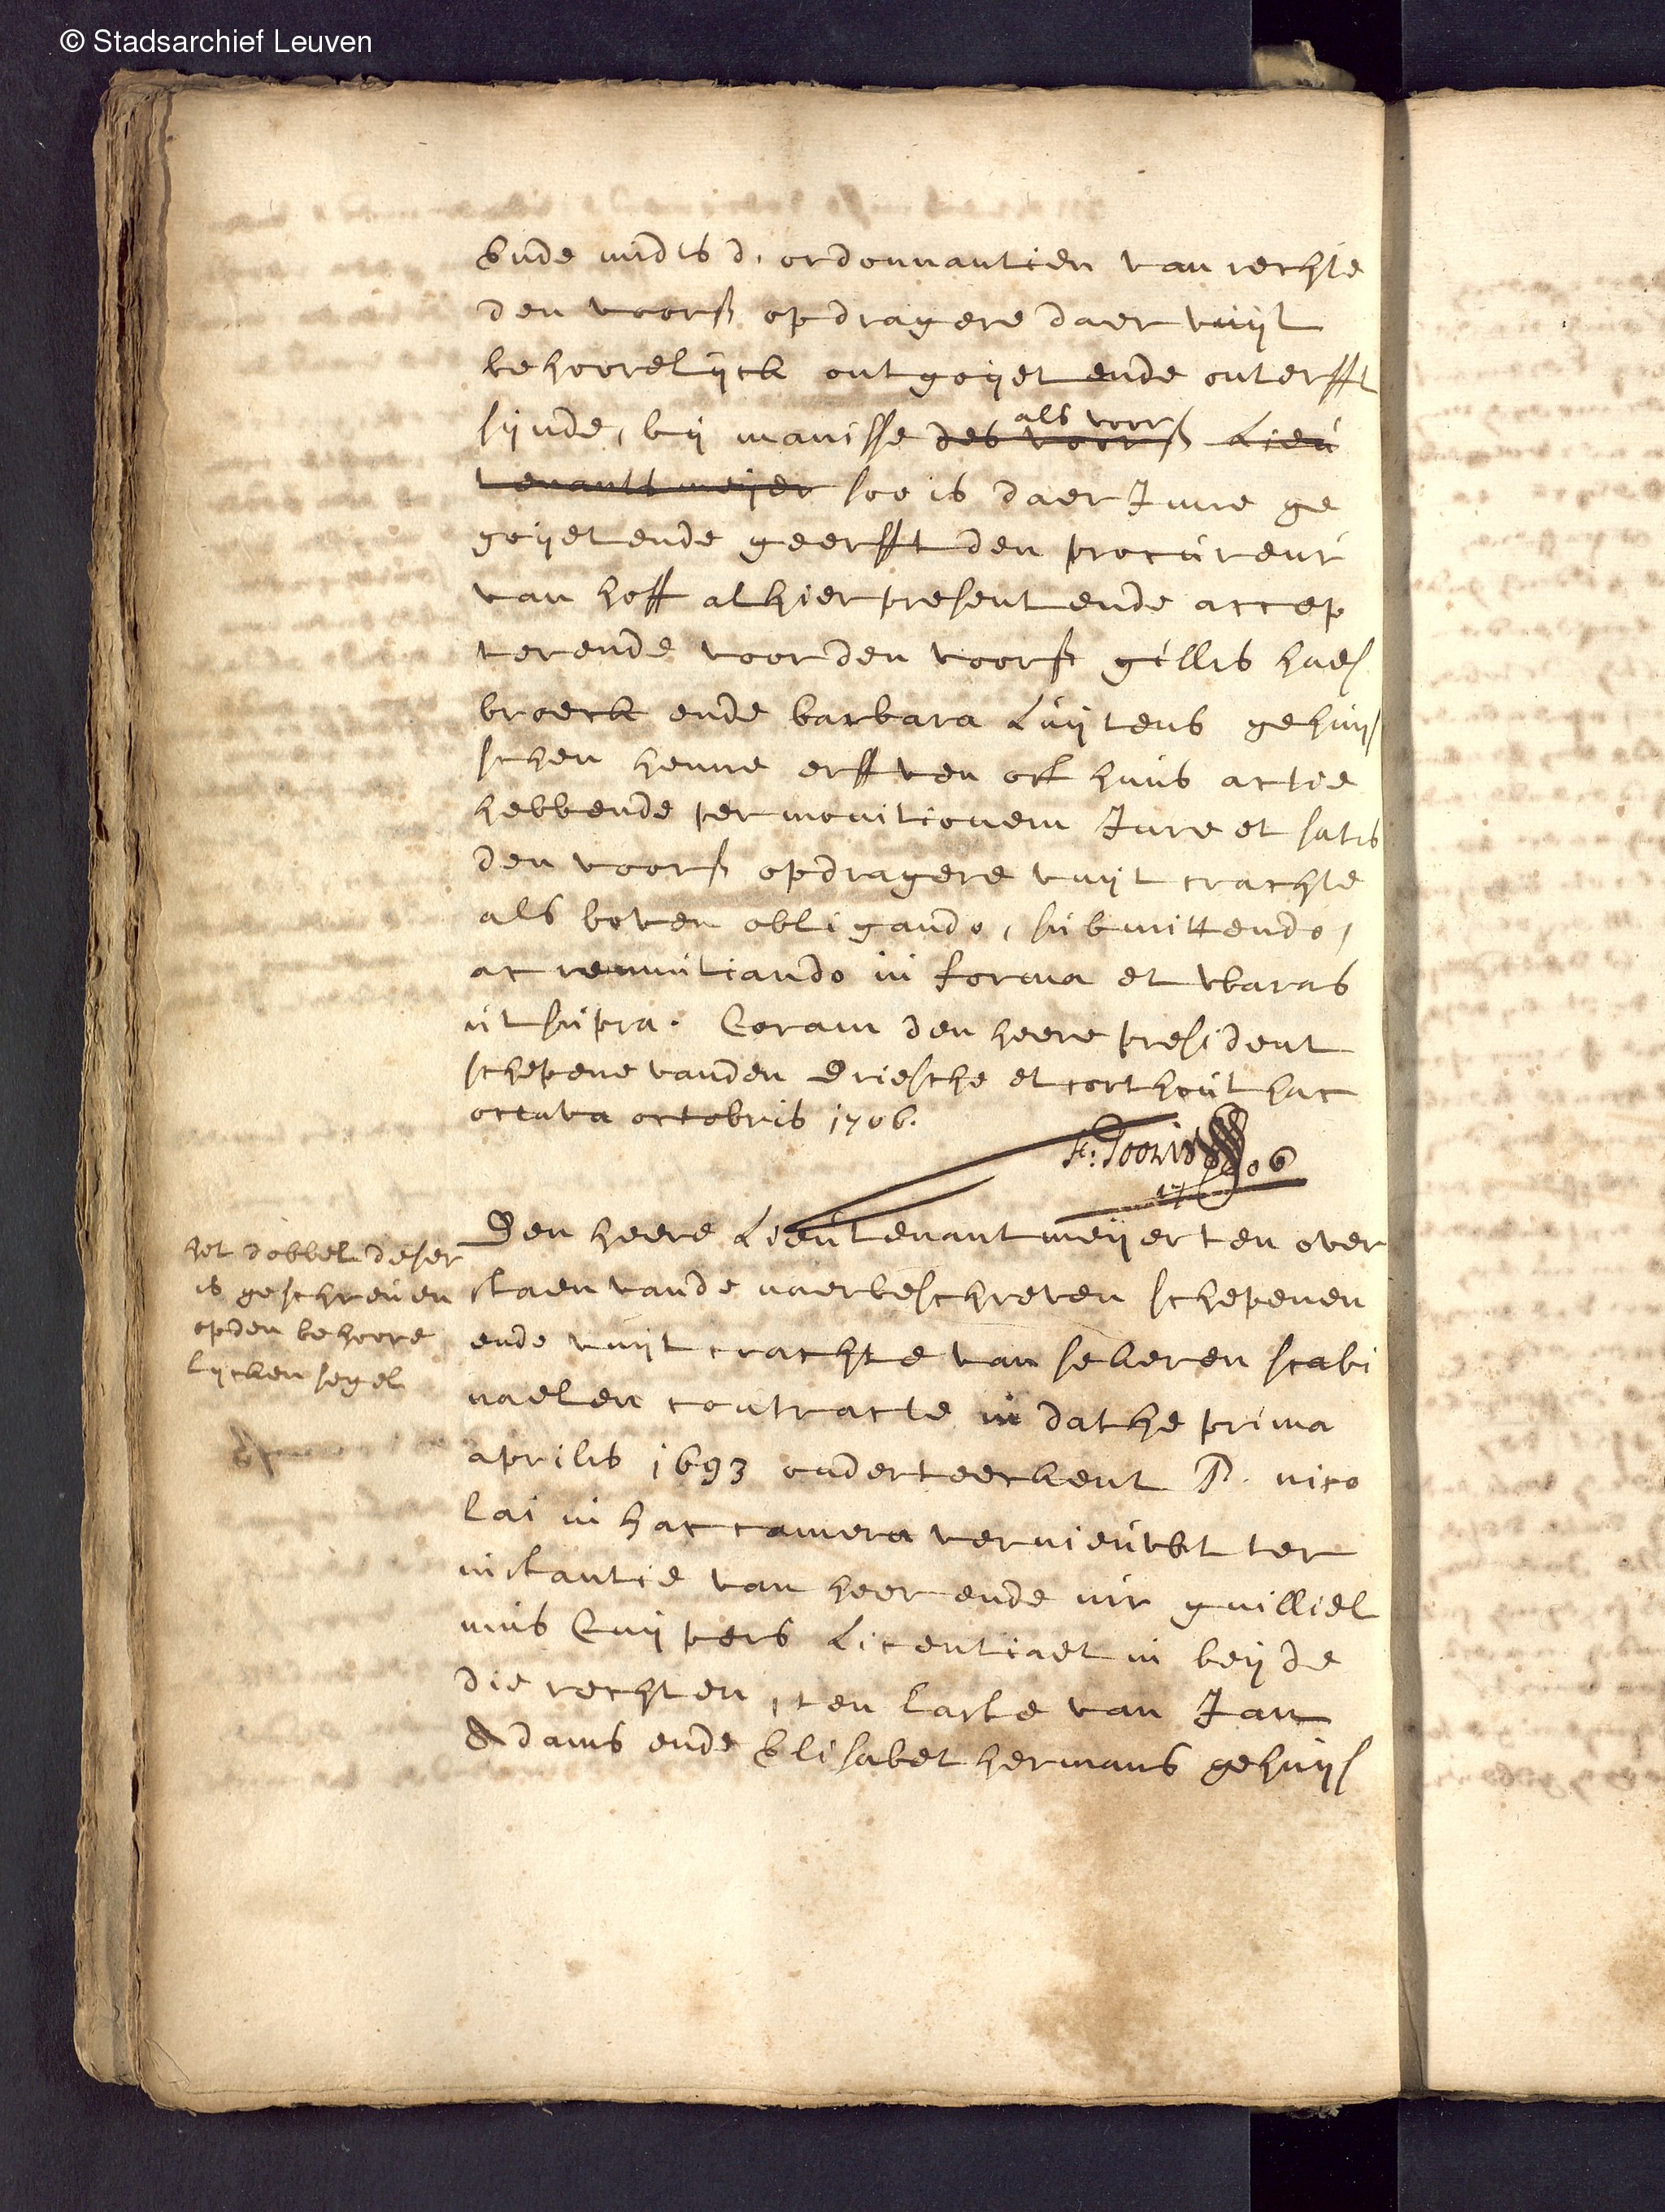 © Stadsarchief Leuven
Ende mids d. ordonnantien van rechte
den voors. opdragere daer vuijt
behoorelijck ontgoijet ende onterfft
sijnde, bij manisse des voors. Lieu
als voor
tenants meijer soo is daer Inne ge
goijet ende geerfft den procureur
van hoff alhier present ende accep
terende voor den voors. gillis haes
broeck ende barbara Luijtens gehuij
schen henne erffven oft huns actie
hebbende per monitionem Jure et satis
den voors. opdragere vuijt crachte
als boven obligando, submittendo,
ac renuntiando in forma et waras
ut supra. Coram den heere president
schepene vanden Driesche et corthout hac
octava octobris 1706.
1706
Den heere Lieutenant meijer ten over
staen vande naerbeschreven schepenen
ende vuijt crachte van sekeren scabi
naelen contracte in dathe prima
aprilis 1693 onderteeckent P. nico
lai in hac camera vernieuwt ter
instantie van heer ende mr guilliel
mus Cuijpers Licentiaet in beijde
die rechten, ten laste van Jan
Adams ende Elisabet hermans gehuijs
het dobbel deser
is geschreven
opden behoore
lijcken segel